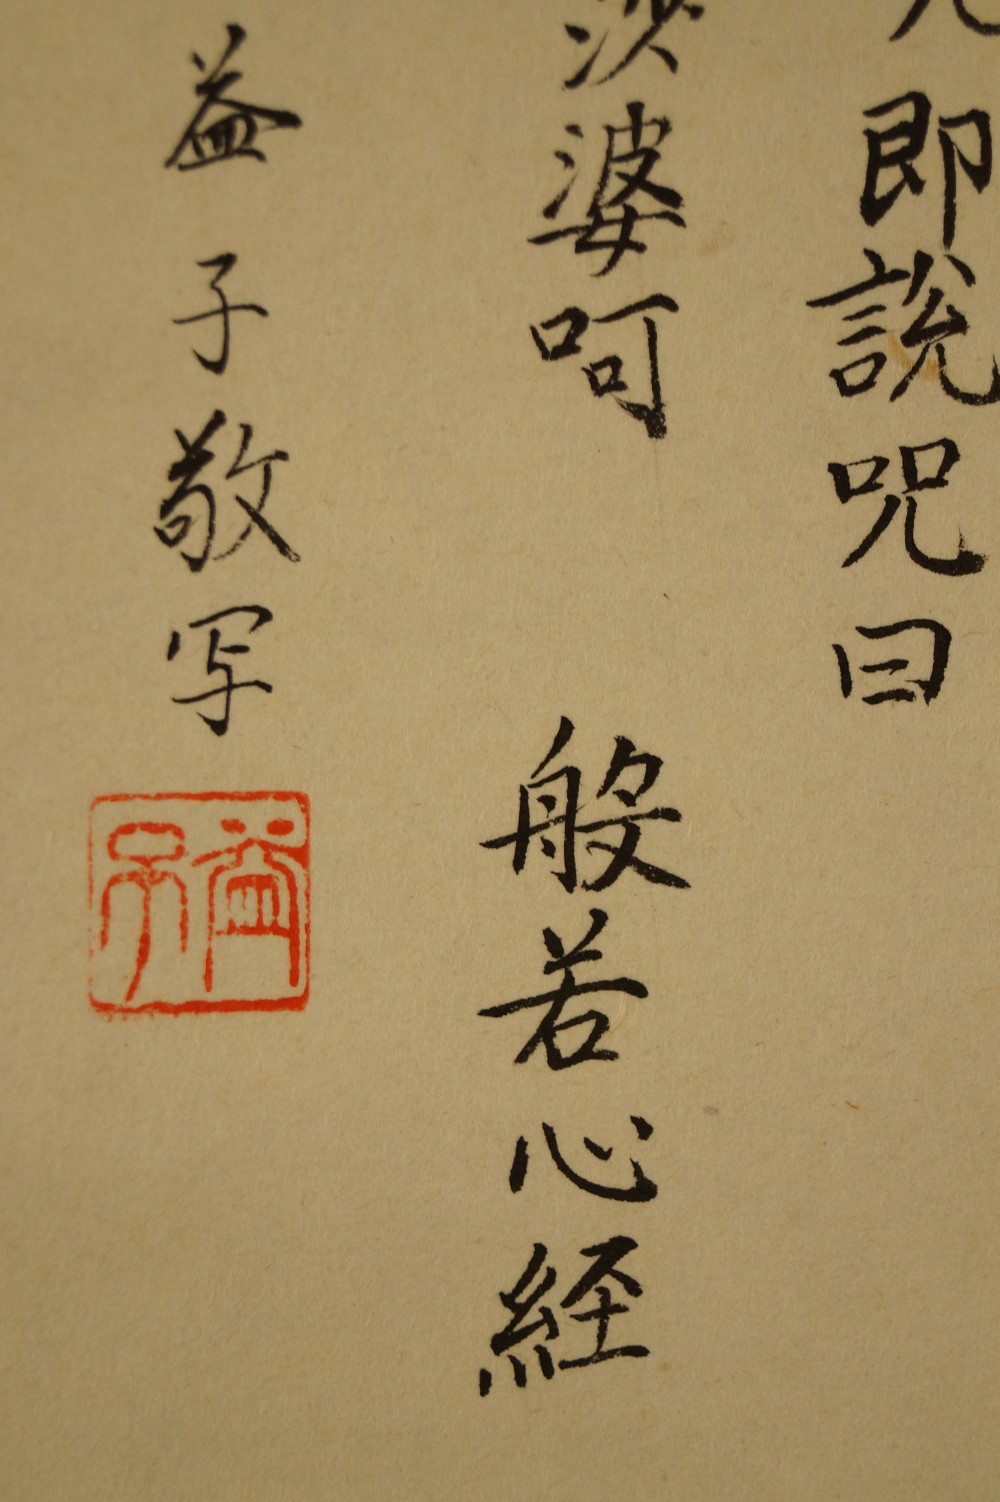 即說咒曰
婆呵 般若心経
益子敬写
益子